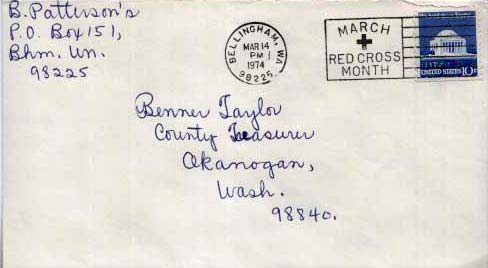 B. Patterson's
P.O. Box 151,
Bhm. Wn.
98225
BELLINGHAM, WA
MAR 14
PM
1974
98225
MARCH
RED CROSS
MONTH
UNITED STATES 10c
Benner Taylor
County Treasurer
Okanogan,
Wash.
98840.